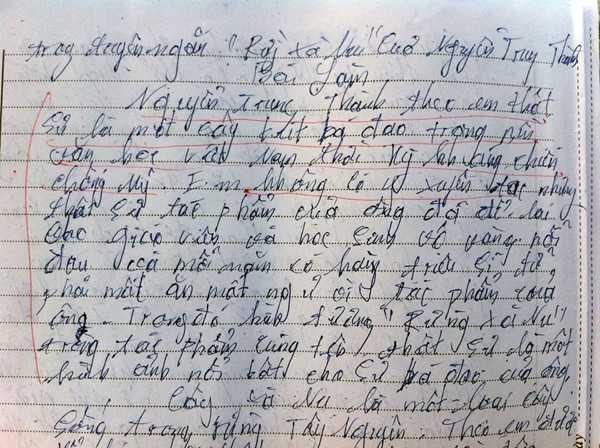 trong truyện ngắn "Rừng xà Nu" Của Nguyễn Trung Thành
Bài Làm
Nguyễn Trung Thành theo em thật
sự là một cây bút bá đạo trong nền
văn học việt Nam thời kỳ kháng chiến
chống Mỹ. Em không có ý xuyên tạc nhưng
thật sự tác phẩm của ông đã để lại
các giáo viên và học sinh vô vàng nỗi
đau cả mỗi năm có hàng triệu sĩ tử
phải mất ăn mất ngủ vì tác phẩm của
ông. Trong đó hình tượng "Rừng xà Nu"
trong tác phẩm cùng tên, thật sự là một
hình ảnh nổi bật cho sự bá đạo của ông.
Cây xà Nu là một loại cây
sống trong rừng Tây Nguyên Theo em được